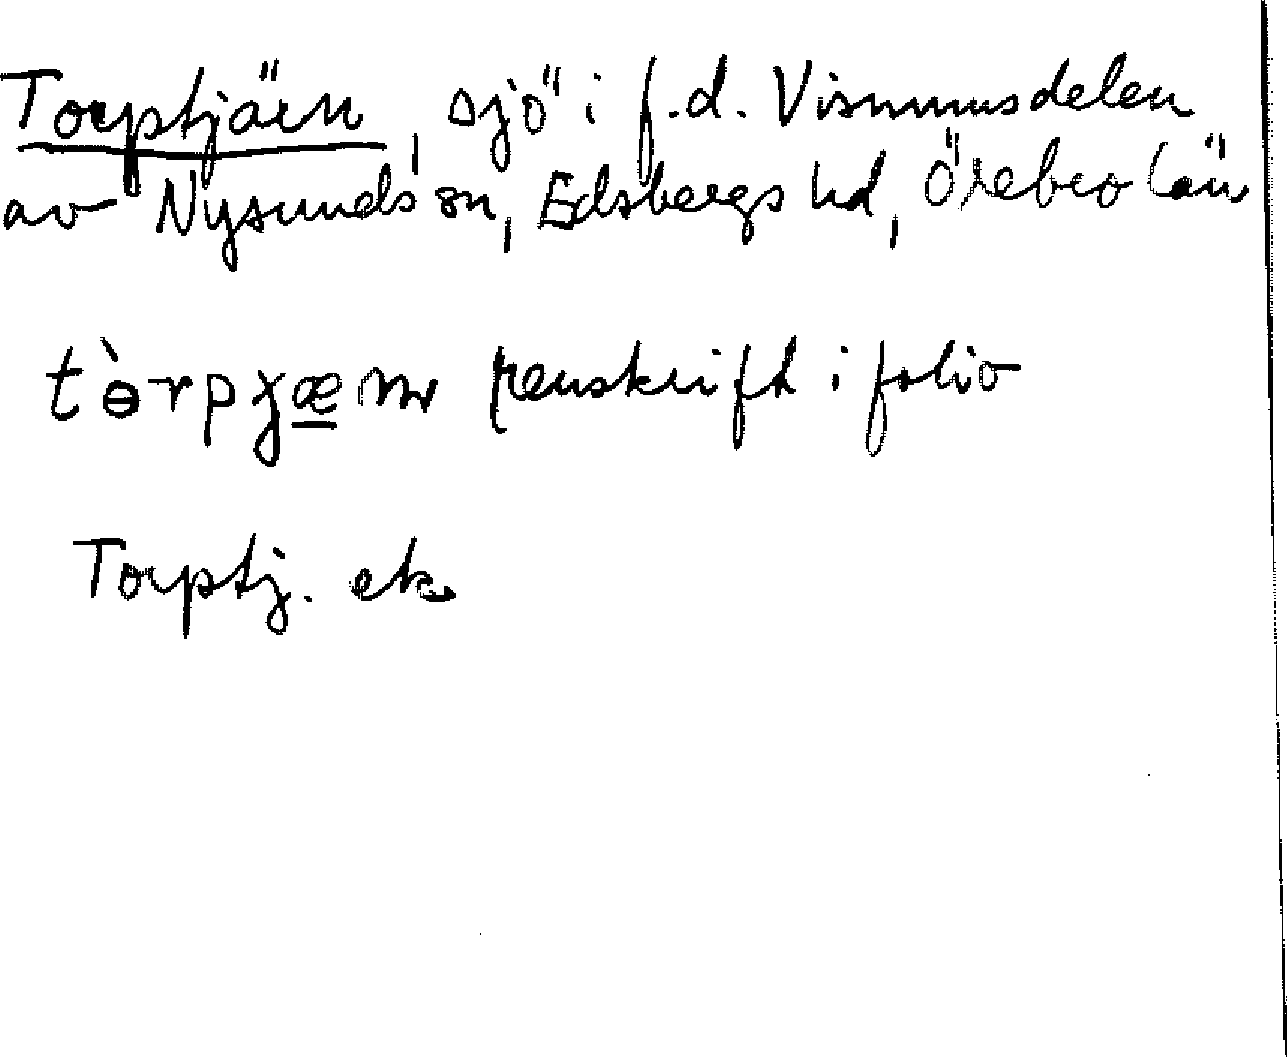 Torptjärn, sjö i f.d. Visnumsdelen
av Nysunds sn, Edsbergs hd, Örebro län
renskrift i folio
Torptj. ek